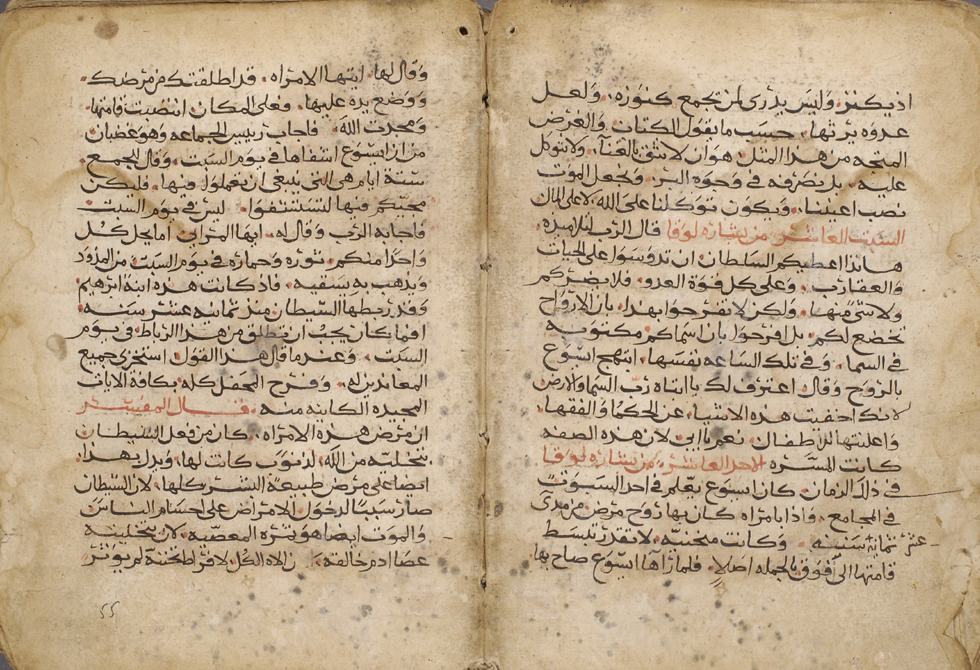 اذ يكنز، وليس يدرى لمن يجمع كنوزه، ولعل
عدوه يرثها، حسب ما يقول الكتاب والغرض
المتجه من هذا المثل هو ان لا نثق بالغنا، ولا نتوكل
عليه، بل نصرفه في وجوه البر، ونجعل الموت
نصب اعيننا، ويكون توكلنا على الله لا على المال
السبت العاشر من بشاره لوقا قال الرب لتلاميذه
هانذا اعطيكم السلطان ان تدوسوا على الحيات
والعقارب، وعلى كل قوة العدو، فلا يضركم
ولا شي منها، ولكن لا تفرحوا بهذا، بان الارواح
تخضع لكم، بل افرحوا بان اسماكم مكتوبه
في السما، وفي تلك الساعه نفسها، ابتهج ايسوع
بالروح وقال اعترف لك يا ابتاه رب السما والارض
لانك اخفيت هذه الاشيا، عن الحكما والفقها،
واعلنتها للاطفال، نعم يا ابي لان هذه الصفه
كانت المسره الاحد العاشر من بشاره لوقا
في ذلك الزمان، كان ايسوع يعلم في احد السبوت
في المجامع، واذا بامراه كان بها روح مرض من مدى
عشر ثمانية سنينه، وكانت منحنيه، لا تقدر تبسط
قامتها الى فوق بالجمله اصلا، فلما رآها ايسوع صاح بها
وقال لها، ايتها الامراه، قد اطلقتك من مرضك
ووضع يده عليها، فعلى المكان انتصبت قامتها،
ومجدت الله، فاجاب رييس الجماعه وهو غضبان
من ان ايسوع اشفاها في يوم السبت، وقال للجمع،
ستة ايام هي التي ينبغى ان تعملوا فيها، فليكن
مجيكم فيها لتستشفوا، ليس في يوم السبت
فاجابه الرب وقال له، ايها المرايي اما يحل كل
واحد منكم، ثوره وحماره في يوم السبت من المزود
ويذهب به يسقيه، فاذ كانت هذه ابنة ابرهيم
وقد ربطها الشيطان منذ ثمانيه عشر سنه،
افما كان يجب ان تطلق من هذا الرباط، في يوم
السبت، وعند ما قال هذا القول، استخزى جميع
المعاندين له، وفرح المحفل كله بكافة الايات
المجيده الكاينه منه، قال المفسر
ان مرض هذه الامراه، كان من فعل الشيطان
بتخليه من الله، لذنوب كانت لها، ويدل بهذا،
ايضا على مرض طبيعة البشر كلها، لان الشيطان
صار سببا لدخول الامراض على اجسام الناس
والموت ايضا هو ثمره المعصيه، لان بتخليته
عصا ادم خالقه، الاه الكل، لافراط محبته لم يوثر
55